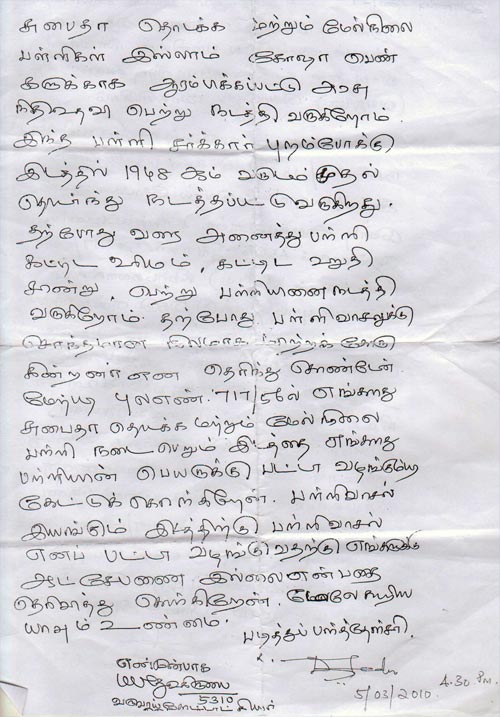 சுபைதா தொடக்க மற்றும் மேல்நிலை
பள்ளிகள் இஸ்லாம் கோஷா பெண்
களுக்காக ஆரம்பக்கப்பட்டு அரசு
நிதிஉதவி பெற்று நடத்தி வருகிறோம்.
இந்த பள்ளி சர்க்கார் புறம்போக்கு
இடத்தில் 1948 ஆம் வருடம் முதல்
தொடர்ந்து நடத்தப்பட்டு வருகிறது.
தற்போது வரை அனைத்து பள்ளி
கட்டிட உரிமம், கட்டிட உறுதி
சான்று, பெற்று பள்ளியினை நடத்தி
வருகிறோம். தற்போது பள்ளிவாசலுக்கு
சொந்தமான
கின்றனர் என தெரிந்து கொண்டேன்.
மேற்படி புலஎண். 717/5ல் எங்களது
சுபைதா தொடக்க மற்றும் மேல்நிலை
பள்ளி நடைபெறும் இடத்தை எங்களது
பள்ளியின் பெயருக்கு பட்டா வழங்குமாறு
கேட்டுக் கொள்கிறேன். பள்ளிவாசல்
இயங்கும் இடத்திற்கு பள்ளிவாசல்
எனப் பட்டா வழங்குவதற்கு எங்களுக்கு
ஆட்சேபணை இல்லை என்பதை
தெரிவித்து கொள்கிறேன். மேலே கூறிய
யாவும் உண்மை. படித்துப் பார்த்தேன் சரி.
என் முன்பாக
5310
5/03/2010. 4.30 PM.